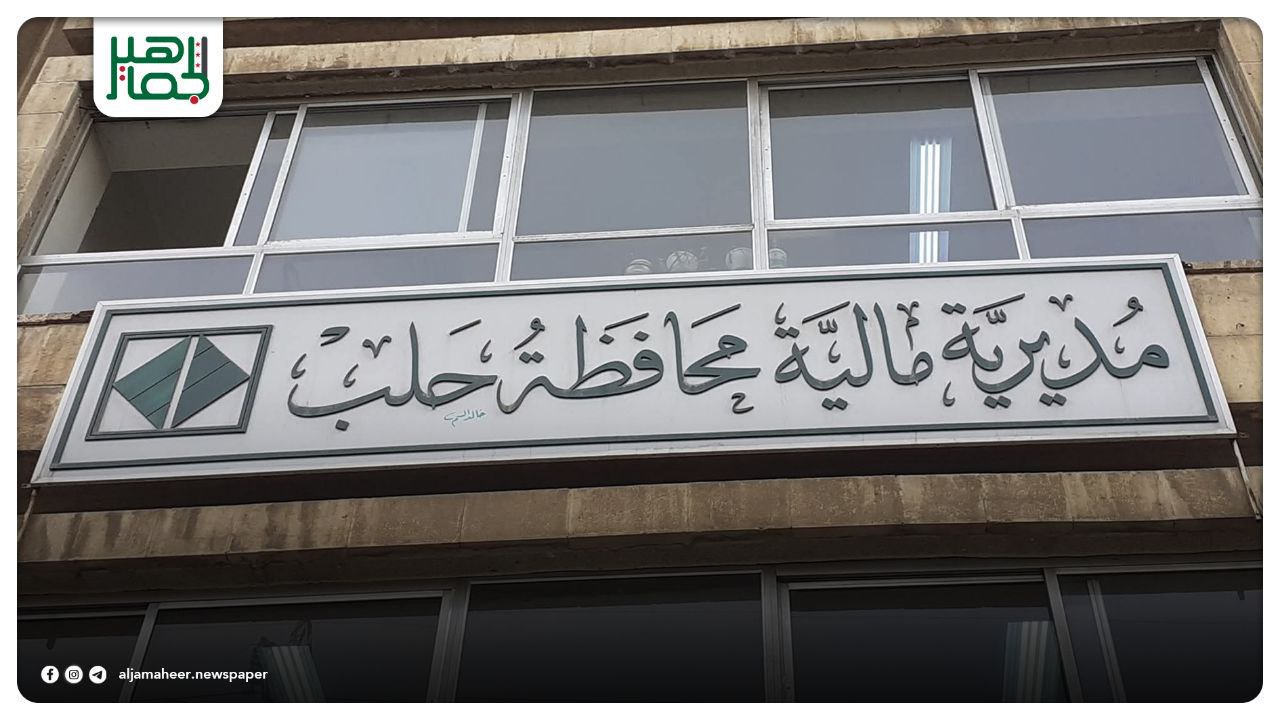 الجماهير
مُديريَّة ماليَّة محافظة حلب
aljamaheer.newspaper